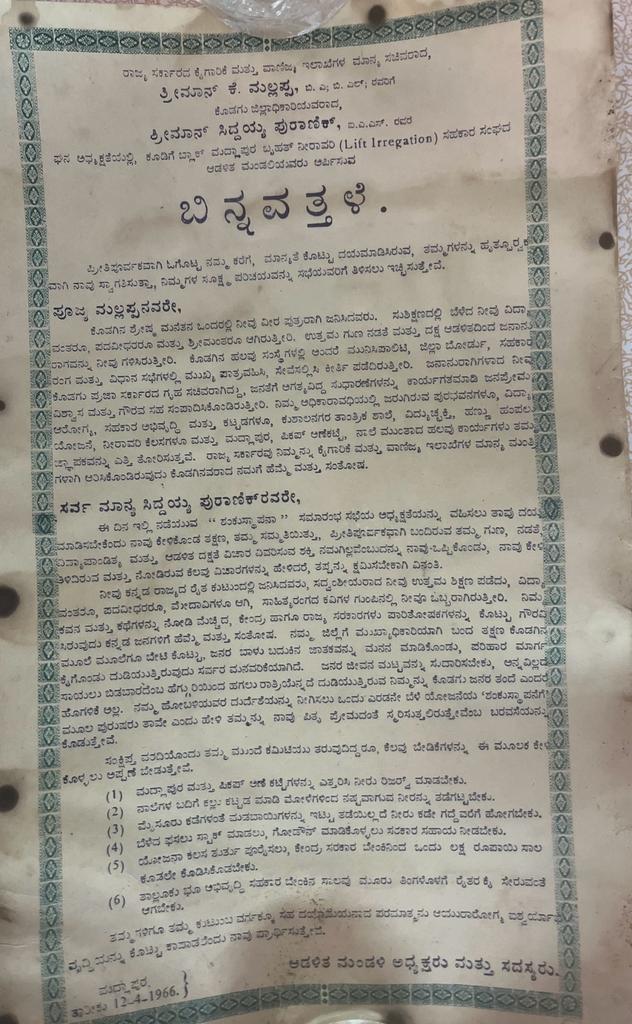 ರಾಜ್ಯ ಸರ್ಕಾರದ ಕೈಗಾರಿಕೆ ಮತ್ತು ವಾಣಿಜ್ಯ ಇಲಾಖೆಗಳ ಮಾನ್ಯ ಸಚಿವರಾದ,
ಶ್ರೀಮಾನ್ ಕೆ. ಮಲ್ಲಪ್ಪ, ಬಿ. ಎ; ಬಿ. ಎಲ್; ರವರಿಗೆ
ಕೊಡಗು ಜಿಲ್ಲಾಧಿಕಾರಿಯವರಾದ,
ಶ್ರೀಮಾನ್ ಸಿದ್ದಯ್ಯ ಪುರಾಣಿಕ್, ಐ.ಎ.ಎಸ್. ರವರ
ಘನ ಅಧ್ಯಕ್ಷತೆಯಲ್ಲಿ, ಕೂಡಿಗೆ ಬ್ಲಾಕ್ ಮದ್ಲಾಪುರ ಬೃಹತ್ ನೀರಾವರಿ (Lift Irregation) ಸಹಕಾರ ಸಂಘದ
ಆಡಳಿತ ಮಂಡಲಿಯವರು ಅರ್ಪಿಸುವ
ಬಿನ್ನವತ್ತಳೆ.
ಪ್ರೀತಿಪೂರ್ವಕವಾಗಿ ಓಗೊಟ್ಟ ನಮ್ಮ ಕರೆಗೆ, ಮಾನ್ಯತೆ ಕೊಟ್ಟು ದಯಮಾಡಿಸಿರುವ, ತಮ್ಮಗಳನ್ನು ಹೃತ್ಪೂರ್ವಕ
ವಾಗಿ ನಾವು ಸ್ವಾಗತಿಸುತ್ತಾ, ನಿಮ್ಮಗಳ ಸೂಕ್ಷ್ಮ ಪರಿಚಯವನ್ನು ಸಭೆಯವರಿಗೆ ತಿಳಿಸಲು ಇಚ್ಛಿಸುತ್ತೇವೆ.
ಪೂಜ್ಯ ಮಲ್ಲಪ್ಪನವರೇ,
ಕೊಡಗಿನ ಶ್ರೇಷ್ಠ ಮನೆತನ ಒಂದರಲ್ಲಿ ನೀವು ವೀರ ಪುತ್ರರಾಗಿ ಜನಿಸಿದವರು. ಸುಶಿಕ್ಷಣದಲ್ಲಿ ಬೆಳೆದ ನೀವು ವಿದ್ಯಾ
ವಂತರೂ, ಪದವೀಧರರೂ ಮತ್ತು ಶ್ರೀಮಂತರೂ ಆಗಿರುತ್ತೀರಿ. ಉತ್ತಮ ಗುಣ ನಡತೆ ಮತ್ತು ದಕ್ಷ ಆಡಳಿತದಿಂದ ಜನಾನು
ರಾಗವನ್ನು ನೀವು ಗಳಿಸಿರುತ್ತೀರಿ. ಕೊಡಗಿನ ಹಲವು ಸಂಸ್ಥೆಗಳಲ್ಲಿ ಅಂದರೆ ಮುನಿಸಿಪಾಲಿಟಿ, ಜಿಲ್ಲಾ ಬೋರ್ಡು, ಸಹಕಾರ
ರಂಗ ಮತ್ತು ವಿಧಾನ ಸಭೆಗಳಲ್ಲಿ ಮುಖ್ಯ ಪಾತ್ರವಹಿಸಿ, ಸೇವೆಸಲ್ಲಿಸಿ ಕೀರ್ತಿ ಪಡೆದಿರುತ್ತೀರಿ. ಜನಾನುರಾಗಿಗಳಾದ ನೀವು
ಕೊಡಗು ಪ್ರಜಾ ಸರ್ಕಾರದ ಗೃಹ ಸಚಿವರಾಗಿದ್ದು, ಜನತೆಗೆ ಅಗತ್ಯವಿದ್ದ ಸುಧಾರಣೆಗಳನ್ನು ಕಾರ್ಯಗತಮಾಡಿ ಜನಪ್ರೇಮ
ವಿಶ್ವಾಸ ಮತ್ತು ಗೌರವ ಸಹ ಸಂಪಾದಿಸಿಕೊಂಡಿರುತ್ತೀರಿ. ನಿಮ್ಮ ಅಧಿಕಾರಾವಧಿಯಲ್ಲಿ ಜರುಗಿರುವ ಪುರಭವನಗಳೂ, ವಿದ್ಯಾ
ಆರೋಗ್ಯ, ಸಹಕಾರ ಅಭಿವೃದ್ಧಿ ಮತ್ತು ಕಟ್ಟಡಗಳೂ, ಕುಶಾಲನಗರ ತಾಂತ್ರಿಕ ಶಾಲೆ, ವಿದ್ಯುಚ್ಛಕ್ತಿ, ಹಣ್ಣು ಹಂಪಲು
ಯೋಜನೆ, ನೀರಾವರಿ ಕೆಲಸಗಳೂ ಮತ್ತು ಮದ್ಲಾಪುರ, ಪಿಕಪ್ ಆಣೆಕಟ್ಟೆ, ನಾಲೆ ಮುಂತಾದ ಹಲವು ಕಾರ್ಯಗಳು ತಮ್ಮ
ಜ್ಞಾಪಕವನ್ನು ಎತ್ತಿ ತೋರಿಸುತ್ತವೆ. ರಾಜ್ಯ ಸರ್ಕಾರವು ನಿಮ್ಮನ್ನು ಕೈಗಾರಿಕೆ ಮತ್ತು ವಾಣಿಜ್ಯ ಇಲಾಖೆಗಳ ಮಾನ್ಯ ಮಂತ್ರಿ
ಗಳಾಗಿ ಆರಿಸಿಕೊಂಡಿರುವುದು ಕೊಡಗಿನವರಾದ ನಮಗೆ ಹೆಮ್ಮೆ ಮತ್ತು ಸಂತೋಷ.
ಸರ್ವ ಮಾನ್ಯ ಸಿದ್ದಯ್ಯ ಪುರಾಣಿಕ್‌ರವರೇ,
ಈ ದಿನ ಇಲ್ಲಿ ನಡೆಯುವ "ಶಂಕುಸ್ಥಾಪನಾ" ಸಮಾರಂಭ ಸಭೆಯ ಅಧ್ಯಕ್ಷತೆಯನ್ನು ವಹಿಸಲು ತಾವು ದಯ
ಮಾಡಿಸಬೇಕೆಂದು ನಾವು ಕೇಳಿಕೊಂಡ ತಕ್ಷಣ, ತಮ್ಮ ಸಮ್ಮತಿಯಿತ್ತು, ಪ್ರೀತಿಪೂರ್ವಕವಾಗಿ ಬಂದಿರುವ ತಮ್ಮ ಗುಣ, ನಡತೆ,
ವಿದ್ಯಾಪಾಂಡಿತ್ಯ ಮತ್ತು ಆಡಳಿತ ದಕ್ಷತೆ ವಿಚಾರ ವಿವರಿಸುವ ಶಕ್ತಿ ನಮಗಿಲ್ಲವೆಂಬುದನ್ನು ನಾವು ಒಪ್ಪಿಕೊಂಡು, ನಾವು ಕೇಳಿ
ತಿಳಿದಿರುವ ಮತ್ತು ನೋಡಿರುವ ಕೆಲವು ವಿಚಾರಗಳನ್ನು ಹೇಳಿದರೆ, ತಪ್ಪನ್ನು ಕ್ಷಮಿಸಬೇಕಾಗಿ ವಿನಂತಿ.
ನೀವು ಕನ್ನಡ ರಾಜ್ಯದ ರೈತ ಕುಟುಂಬದಲ್ಲಿ ಜನಿಸಿದವರು, ಸದ್ವಂಶೀಯರಾದ ನೀವು ಉತ್ತಮ ಶಿಕ್ಷಣ ಪಡೆದು, ವಿದ್ಯಾ
ವಂತರೂ, ಪದವೀಧರರೂ, ಮೇದಾವಿಗಳೂ ಆಗಿ, ಸಾಹಿತ್ಯರಂಗದ ಕವಿಗಳ ಗುಂಪಿನಲ್ಲಿ ನೀವೂ ಒಬ್ಬರಾಗಿರುತ್ತೀರಿ. ನಿಮ್ಮ
ಕವನ ಮತ್ತು ಕಥೆಗಳನ್ನು ನೋಡಿ ಮೆಚ್ಚಿದ, ಕೇಂದ್ರ ಹಾಗೂ ರಾಜ್ಯ ಸರಕಾರಗಳು ಪಾರಿತೋಷಕಗಳನ್ನು ಕೊಟ್ಟು ಗೌರವಿ
ಸಿರುವುದು ಕನ್ನಡ ಜನಗಳಿಗೆ ಹೆಮ್ಮೆ ಮತ್ತು ಸಂತೋಷ. ನಮ್ಮ ಜಿಲ್ಲೆಗೆ ಮುಖ್ಯಾಧಿಕಾರಿಯಾಗಿ ಬಂದ ತಕ್ಷಣ ಕೊಡಗಿನ
ಮೂಲೆ ಮೂಲೆಗೂ ಬೇಟಿ ಕೊಟ್ಟು, ಜನರ ಬಾಳು ಬದುಕಿನ ಜಾತಕವನ್ನು ಮನನ ಮಾಡಿಕೊಂಡು, ಪರಿಹಾರ ಮಾರ್ಗ
ಕೈಗೊಂಡು ದುಡಿಯುತ್ತಿರುವುದು ಸರ್ವರ ಮನವರಿಕೆಯಾಗಿದೆ. ಜನರ ಜೀವನ ಮಟ್ಟವನ್ನು ಸುದಾರಿಸಬೇಕು, ಅನ್ನವಿಲ್ಲದೆ
ಸಾಯಲು ಬಿಡಬಾರದೆಂಬ ಹೆಗ್ಗುರಿಯಿಂದ ಹಗಲು ರಾತ್ರಿಯೆನ್ನದೆ ದುಡಿಯುತ್ತಿರುವ ನಿಮ್ಮನ್ನು ಕೊಡಗು ಜನರ ತಂದೆ ಎಂದರೆ
ಹೊಗಳಿಕೆ ಅಲ್ಲ. ನಮ್ಮ ಹೋಬಳಿಯವರ ದುರ್ದೆಶೆಯನ್ನು ನೀಗಿಸಲು ಒಂದು ಎರಡನೇ ಬೆಳೆ ಯೋಜನೆಯ 'ಶಂಕುಸ್ಥಾಪನೆಗೆ'
ಮೂಲ ಪುರುಷರು ತಾವೇ ಎಂದು ಹೇಳಿ ತಮ್ಮನ್ನು ನಾವು ಪಿತೃ ಪ್ರೇಮದಂತೆ ಸ್ಮರಿಸುತ್ತಲಿರುತ್ತೇವೆಂಬ ಬರವಸೆಯನ್ನು
ಕೊಡುತ್ತೇವೆ.
ಸಂಕ್ಷಿಪ್ತ ವರದಿಯೊಂದು ತಮ್ಮ ಮುಂದೆ ಕಮಿಟಿಯು ತರುವುದಿದ್ದರೂ, ಕೆಲವು ಬೇಡಿಕೆಗಳನ್ನು ಈ ಮೂಲಕ ಕೇಳಿ
ಕೊಳ್ಳಲು ಅಪ್ಪಣೆ ಬೇಡುತ್ತೇವೆ.
(1) ಮದ್ಲಾಪುರ ಮತ್ತು ಪಿಕಪ್ ಆಣೆ ಕಟ್ಟೆಗಳನ್ನು ಎತ್ತರಿಸಿ ನೀರು ರಿಜರ್ವ್ ಮಾಡಬೇಕು.
(2) ನಾಲೆಗಳ ಬದಿಗೆ ಕಲ್ಲು ಕಟ್ಟಡ ಮಾಡಿ ಮೋಳೆಗಳಿಂದ ನಷ್ಟವಾಗುವ ನೀರನ್ನು ತಡೆಗಟ್ಟಬೇಕು.
(3) ಮೈಸೂರು ಕಡೆಗಳಂತೆ ಮಡಬಾಯಿಗಳನ್ನು ಇಟ್ಟು ತಡೆಯಿಲ್ಲದೆ ನೀರು ಕಡೇ ಗದ್ದೆವರೆಗೆ ಹೋಗಬೇಕು.
(4) ಬೆಳೆದ ಫಸಲು ಸ್ಟಾಕ್ ಮಾಡಲು, ಗೋಡೌನ್ ಮಾಡಿಕೊಳ್ಳಲು ಸರಕಾರ ಸಹಾಯ ನೀಡಬೇಕು.
(5) ಯೋಜನಾ ಕೆಲಸ ತುರ್ತು ಪೂರೈಸಲು, ಕೇಂದ್ರ ಸರಕಾರ ಬೇಂಕಿನಿಂದ ಒಂದು ಲಕ್ಷ ರೂಪಾಯಿ ಸಾಲ
ಕೂಡಲೇ ಕೊಡಿಸಿಕೊಡಬೇಕು.
(6) ತಾಲ್ಲೂಕು ಭೂ ಅಭಿವೃದ್ಧಿ ಸಹಕಾರ ಬೇಂಕಿನ ಸಾಲವು ಮೂರು ತಿಂಗಳೊಳಗೆ ರೈತರ ಕೈ ಸೇರುವಂತೆ
ಆಗಬೇಕು.
ತಮ್ಮಗಳಿಗೂ ತಮ್ಮ ಕುಟುಂಬ ವರ್ಗಕ್ಕೂ ಸಹ ದಯಾಮಯನಾದ ಪರಮಾತ್ಮನು ಆಯುರಾರೋಗ್ಯ ಐಶ್ವರ್ಯಾಭಿ
ವೃದ್ಧಿಯನ್ನು ಕೊಟ್ಟು ಕಾಪಾಡಲೆಂದು ನಾವು ಪ್ರಾರ್ಥಿಸುತ್ತೇವೆ.
ಮದ್ಲಾಪುರ,
ತಾರೀಕು 12-4-1966.
ಆಡಳಿತ ಮಂಡಳಿ ಅಧ್ಯಕ್ಷರು ಮತ್ತು ಸದಸ್ಯರು.